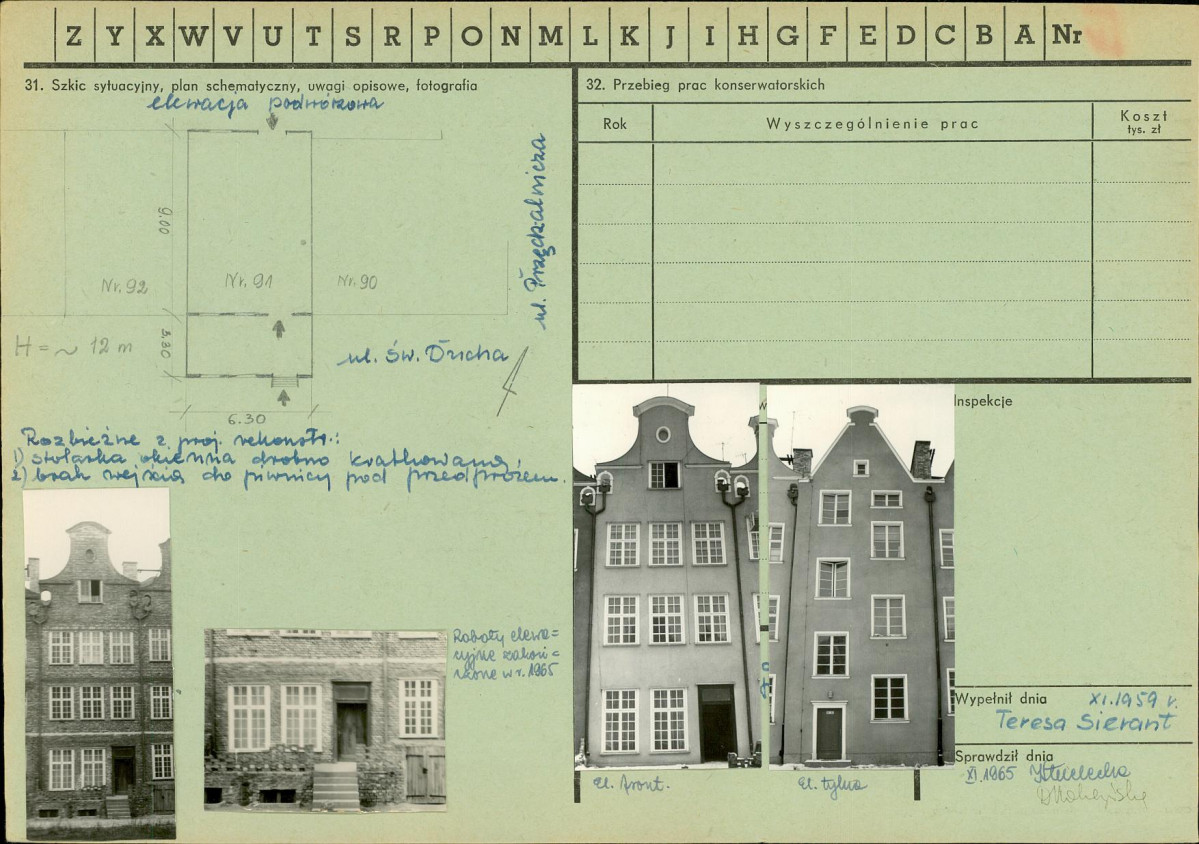 Z Y X W V U T S R P O N M L K J I H G F E D C B A Nr
31. Szkic sytuacyjny, plan schematyczny, uwagi opisowe, fotografia
elewacja podwórzowa
9.00
Nr. 92
Nr. 91
Nr. 90
ul. Przędzalnicza
H = ~ 12 m
3.30
ul. Św. Ducha
6.30
Rozbieżne z proj. rekonstr.:
1) stolarka okienna drobno kratkowana,
2) brak wejścia do piwnicy pod przedprożem.
Roboty elewa=
cyjne zakoń=
czone w r. 1965
32. Przebieg prac konserwatorskich
Rok
Wyszczególnienie prac
Koszt
tys. zł
Inspekcje
el. front.
el. tylna
Wypełnił dnia XI.1959 r.
Teresa Sierant
Sprawdził dnia
XI.1965